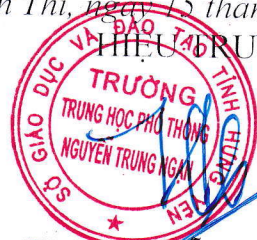 n Thi, ngày 15 thán
HIỆU TRƯ
SỞ GIÁO DỤC VÀ ĐÀO TẠO TỈNH HƯNG YÊN
TRƯỜNG
TRUNG HỌC PHỔ THÔNG
NGUYỄN TRUNG NGẠN